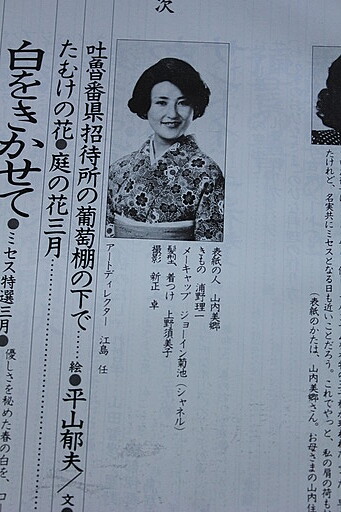 次
たけれど、名実共にミセスとなる日も近いことだろう。これでやっと、私の肩の荷も
（表紙のかたは、山内美郷さん。お母さまの山内
表紙の人　山内美郷
きもの　浦野理一
メーキャップ　ジョーイン菊池（シャネル）
髪型、着つけ　上野須美子
撮影　新正　卓
アートディレクター　江島　任
吐魯番県招待所の葡萄棚の下で……絵●平山郁夫／文●
たむけの花●庭の花三月……
白をきかせて●ミセス特選三月●優しさを秘めた春の白を、